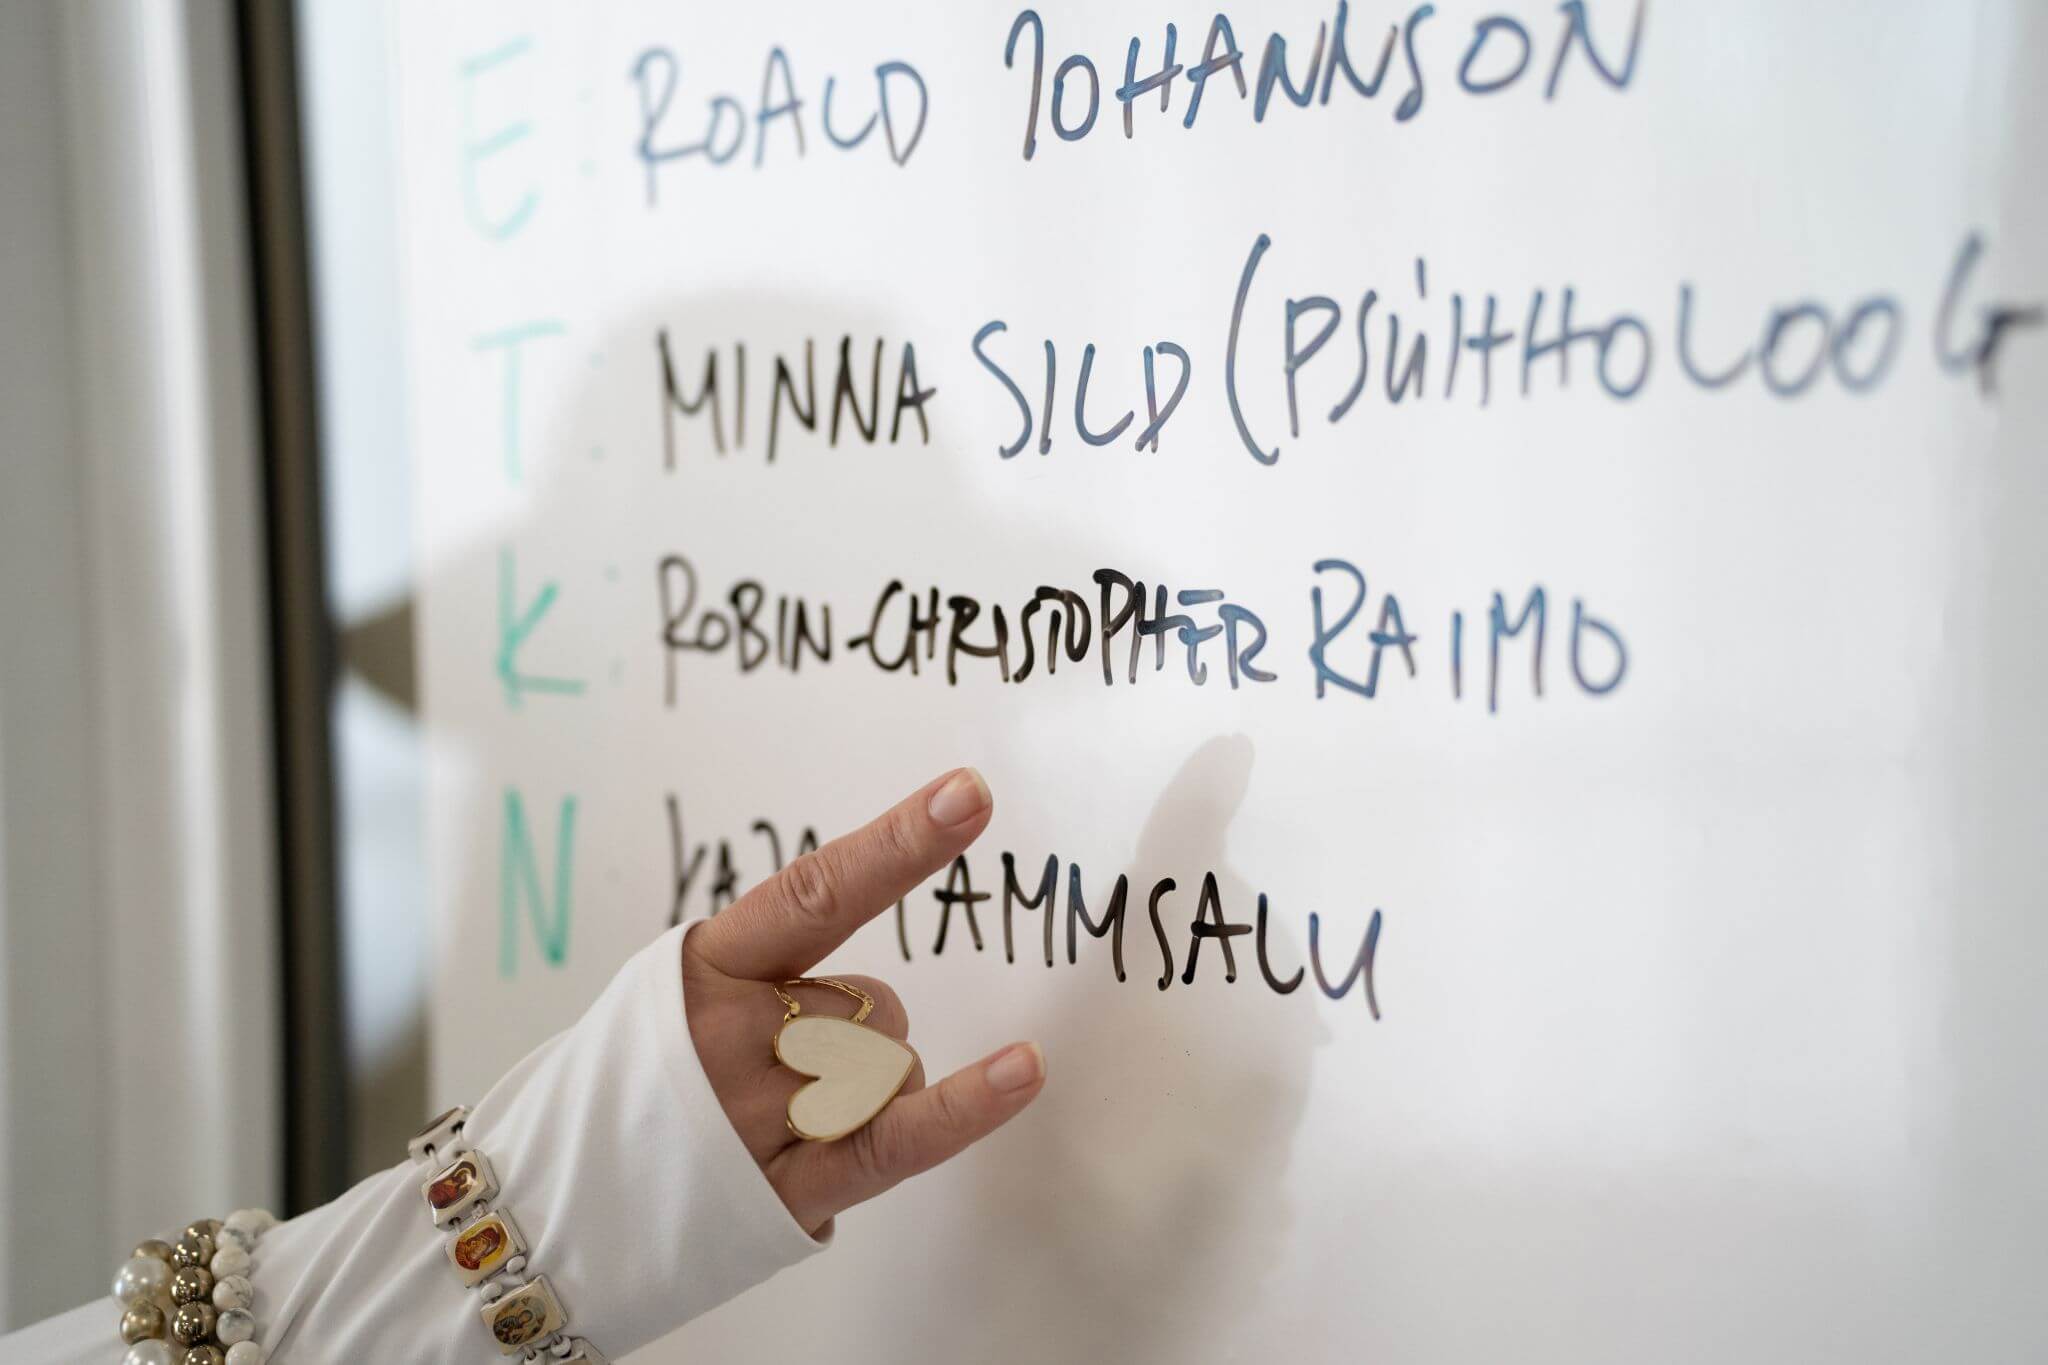 E: ROALD JOHANNSON
T: MINNA SILD (PSÜHHOLOOG
K: ROBIN-CHRISTOPHER RAIMO
N: TAMMSALU